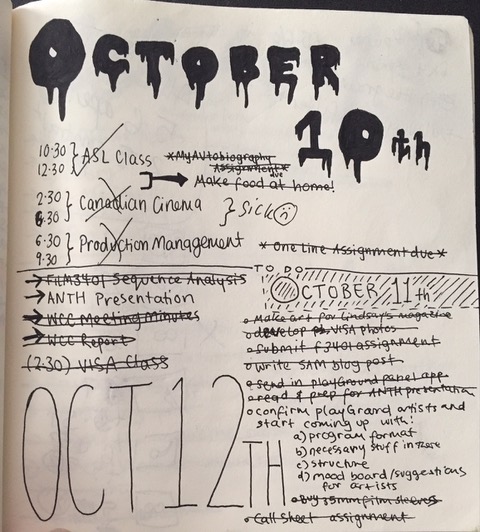 OCTOBER
10th
10:30 } ASL Class *MyAutobiography
12:30 Assignment due*
Make food at home!
2:30 } Canadian Cinema } Sick
6:30
6:30 } Production Management
9:30 *One Line Assignment due*
→ FILM3401 Sequence Analysis
→ ANTH Presentation
→ WCC Meeting Minutes
→ WCC Report
(2:30) VISA Class
TO DO
OCTOBER 11th
Make art for Lindsay's magazine
develop VISA photos
submit f3401 assignment
write SAM blog post
send in playGround panel app
read & prep for ANTH presentation
confirm playGrand artists and
start coming up with:
a) program format
b) necessary stuff in there
c) structure
d) mood board/suggestions
for artists
Buy 35mm film sleeves
Call sheet assignment
OCT 12TH